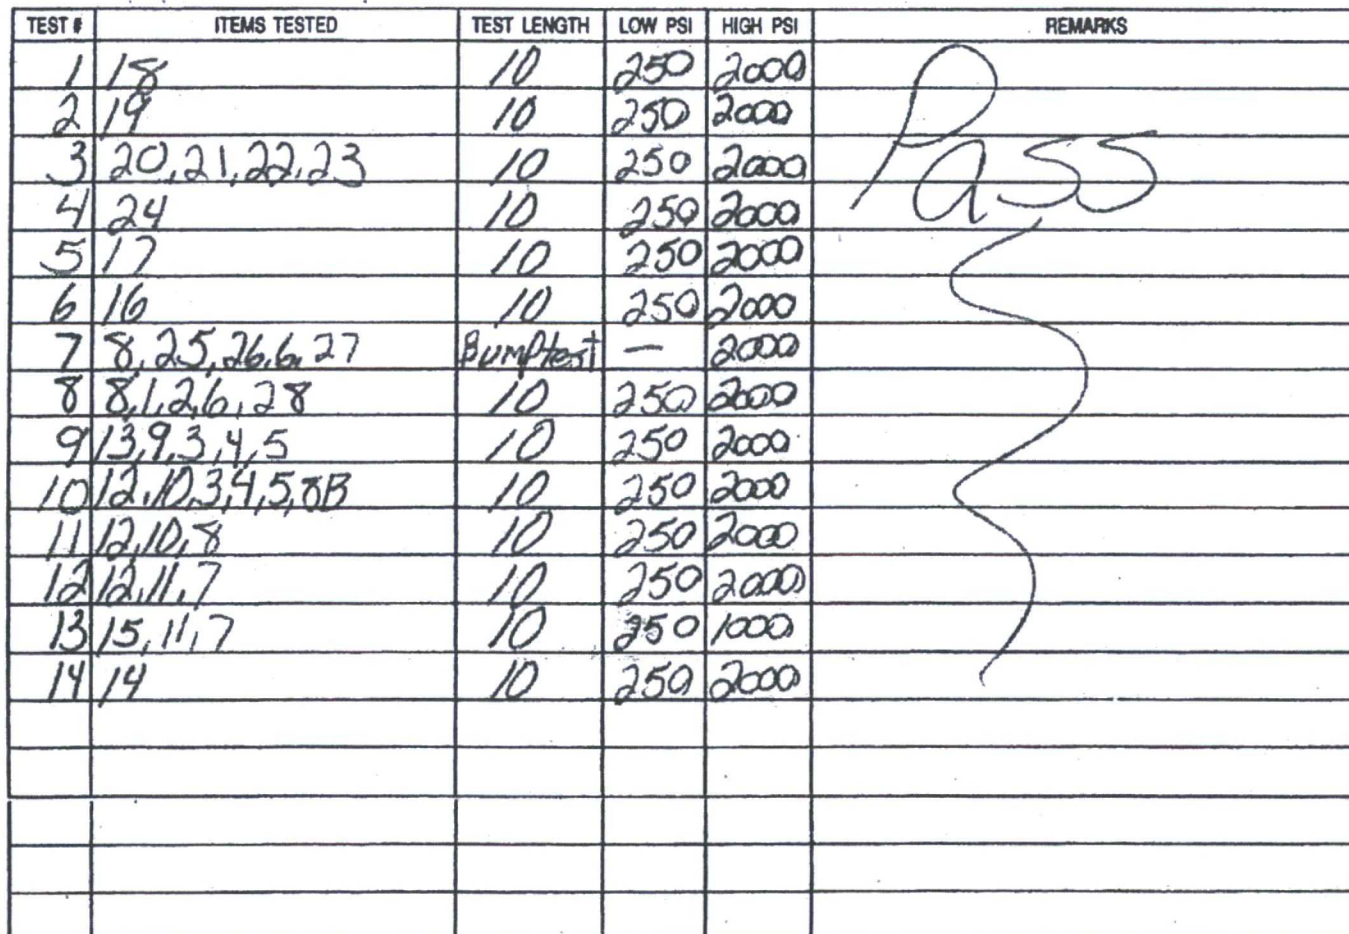 TEST # ITEMS TESTED TEST LENGTH LOW PSI HIGH PSI REMARKS
1 18 10 250 2000
2 19 10 250 2000
3 20,21,22,23 10 250 2000 Pass
4 24 10 250 2000
5 17 10 250 2000
6 16 10 250 2000
7 8,25,26,6,27 Bumptest — 2000
8 8,1,2,6,28 10 250 2000
9 13,9,3,4,5 10 250 2000
10 12,10,3,4,5,8B 10 250 2000
11 12,10,8 10 250 2000
12 12,11,7 10 250 2000
13 15,11,7 10 250 1000
14 14 10 250 2000